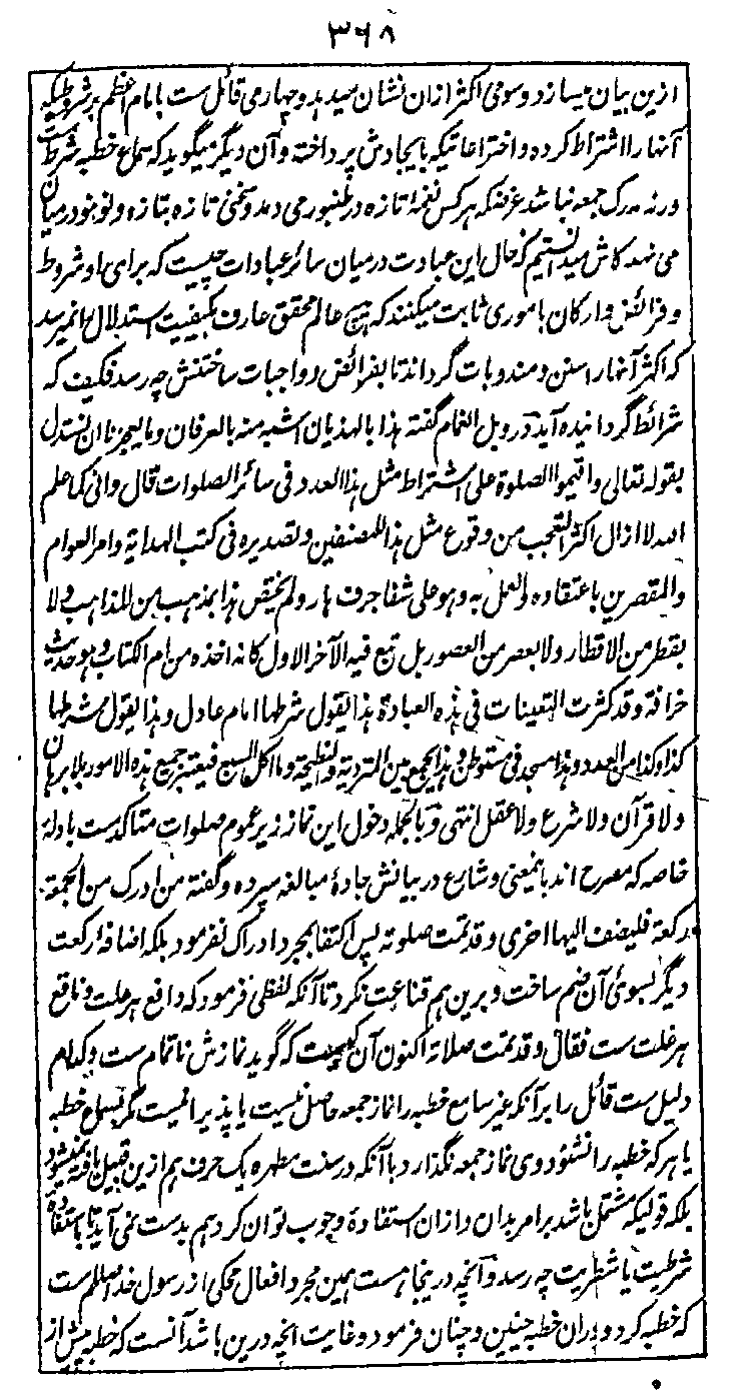 ۳۶۸
ازین بیان میسازد و سومی اکثر ازان نشان میدهد و چهارمی قائل ست بامام اعظم بر شروطیکه
آنها را اشتراط کرده و اختراعاتیکه بایجادش پرداخته و آن دیگر میگوید که سماع خطبه شرط ست
ورنه مدرک جمعه نباشد غرضکه هر کس نغمهٔ تازه در طنبور می دمد و سخنی تازه بتازه و نو بنو درمیان
می نهد کاش میدانستیم که حال این عبادت درمیان سائر عبادات چیست که برای او شروط
و فرائض و ارکان باموری ثابت میکنند که هیچ عالم محقق عارف بکیفیت استدلال را نمیرسد
که اکثر آنها را سنن و مندوبات گرداند تا بفرائض و واجبات ساختنش چه رسد فکیف که
شرائط گردانیده آید در وبل الغمام گفته هذا بالهذیان اشبه منه بالعرفان و ما یعجزنا ان نستدل
بقوله تعالی و اقیموا الصلوة علی اشتراط مثل هذا العدد فی سائر الصلوات قال و انی کما علم
الله لا ازال اکثر التعجب من وقوع مثل هذا للمصنفین و تصدیره فی کتب الهدایة و امر العوام
و المقصرین باعتقاده و العمل به و هو علی شفا جرف هار و لم یختص هذا بمذهب من المذاهب و لا
بقطر من الاقطار و لا بعصر من العصور بل تبع فیه الآخر الاول کانه اخذه من ام الکتاب و هو حدیث
خرافة و قد کثرت التعینات فی هذه العبادة هذا یقول شرطها امام عادل و هذا یقول شرطها
کذا و کذا من العدد و هذا مسجد فی مستوطن و هذا یجمع بین المتردیة و النطیحة و ما اکل السبع فیعتبر جمیع هذه الامور بلا برهان
و لا قرآن و لا شرع و لا عقل انتهی و بالجمله دخول این نماز زیر عموم صلوات متاکدست بادلهٔ
خاصه که مصرح اند باینمعنی و شارع در بیانش جادهٔ مبالغه سپرده و گفته من ادرک من الجمعة
رکعة فلیضف الیها اخری و قد تمت صلوته پس اکتفا بمجرد ادراک نفرمود بلکه اضافهٔ رکعت
دیگر بسوئ آن ضم ساخت و برین هم قناعت نکرد تا آنکه لفظی فرمود که دافع هر علت و ناقع
هر غلت ست فقال و قد تمت صلاته اکنون آن کیست که گوید نمازش ناتمام ست و کدام
دلیل ست قائل را برآنکه غیر سامع خطبه را نماز جمعه حاصل نیست یا پذیرا نیست مگر بسماع خطبه
یا هر که خطبه را نشنود وی نماز جمعه نگذارد با آنکه در سنت مطهره یک حرف هم ازین قبیل یافته نمیشود
بلکه قولیکه مشتمل باشد بر امر بدان و ازان استفادهٔ وجوب توان کرد هم بدست نمی آید تا باستفادهٔ
شرطیت یا شطریت چه رسد و آنچه درینجا هست همین مجرد افعال محکی از رسول خدا صلم ست
که خطبه کرد و دران خطبه چنین و چنان فرمود و غایت انچه درین باشد آنست که خطبه پیش از